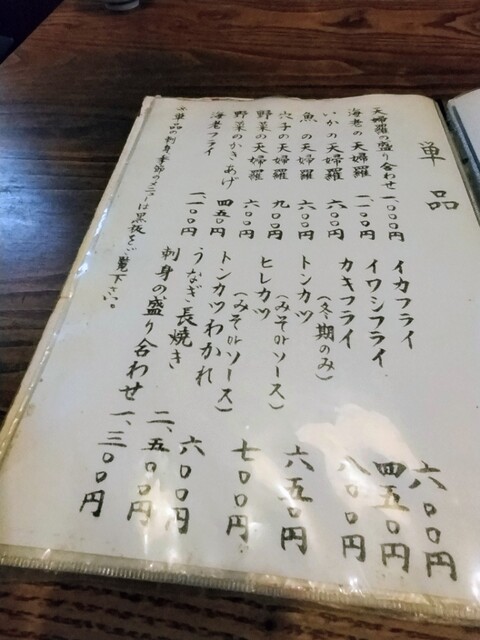 単品
天婦羅の盛り合わせ 一、〇〇〇円
海老の天婦羅 一、〇〇円
いかの天婦羅 六〇〇円
魚の天婦羅 六〇〇円
穴子の天婦羅 九〇〇円
野菜の天婦羅 六〇〇円
野菜のかきあげ 四五〇円
海老フライ 一、一〇〇円
イカフライ 六〇〇円
イワシフライ 四五〇円
カキフライ 八〇〇円
(冬期のみ)
トンカツ 六五〇円
(みそorソース)
ヒレカツ 七〇〇円
(みそorソース)
トンカツわかれ 六〇〇円
うなぎ長焼き 二、五〇〇円
刺身の盛り合わせ 一、三〇〇円
※単品の刺身、季節のメニューは黒板をご覧下さい。